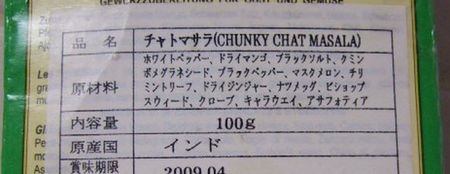 GEWÜRZZUBEREITUNG FÜR OBST UND GEMÜSE
品名 チャトマサラ(CHUNKY CHAT MASALA)
原材料 ホワイトペッパー、ドライマンゴ、ブラックソルト、クミン
ポメグラネシード、ブラックペッパー、マスクメロン、チリ
ミントリーフ、ドライジンジャー、ナツメッグ、ビショップ
スウィード、クローブ、キャラウエイ、アサフォティア
内容量 100g
原産国 インド
賞味期限 2009.04